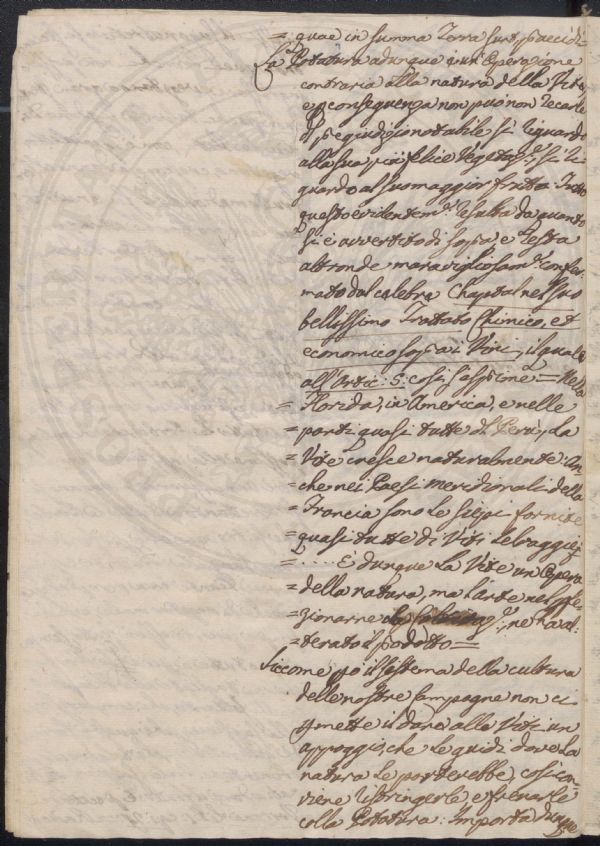 = quae in summa Terra sunt, praecidi=
La Potatura adunque è un'Operazione
contraria alla natura della Vite,
e p conseguenza non può non recarle
pregiudizi notabile si riguardo
alla sua più felice Vegetaz:e, si ri=
guardo al suo maggior frutto. Tutto
questo evidentem:e risulta da quanto
si è avvertito di sopra, e resta
altronde maravigliosam:e confer=
mato dal celebre Chaptal nel suo
bellissimo Trattato Chimico, et
economico sopra i Vini, il quale
all'Artic: 5: così s'esprime = Nella
= Florida, in America, e nelle
= parti quasi tutte del Perù, la
= Vite cresce naturalmente: An=
= che nei Paesi meridionali della
= Francia sono le siepi fornite
= quasi tutte di Viti selvaggie
= .... È dunque la Vite un'Opera
= della natura, ma l'arte nel per=
= zionarne la, ne ha al=
= terato il prodotto =
Siccome però il sistema della cultura
delle nostre Campagne non ci
permette il dare alle Viti un
appoggio, che le guidi dove la
natura le porterebbe, così con=
viene ristringerle, e frenarle
colla Potatura: Importa dunque